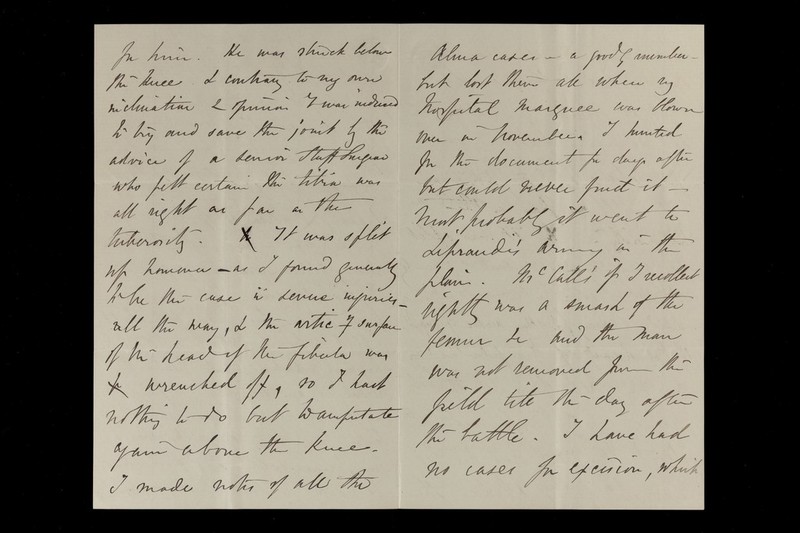 for him. He was struck below
the knee & contrary to my own
inclination & opinion I was induced
to try and save the joint by the
advice of a senior Staff Surgeon
who felt certain the tibia was
all right as far as the
tuberosity. It was split
up however – as I found generally
to be the case in severe injuries –
all the way, & the artic g surface
of the head of the fibula was
wrenched off, so I had
nothing to do but to amputate
again above the knee.
I made notes of all the
Alma cases – a goodly number –
but lost them all when my
hospital marquee was blown
over in November. I hunted
for the document for days after
but could never find it –
most probably it went to
Liprandi's army in the
plain. McCall's if I recollect
rightly was a smash of the
femur and the man
was not removed from the
field till the day after
the battle. I have had
no cases for excision, which